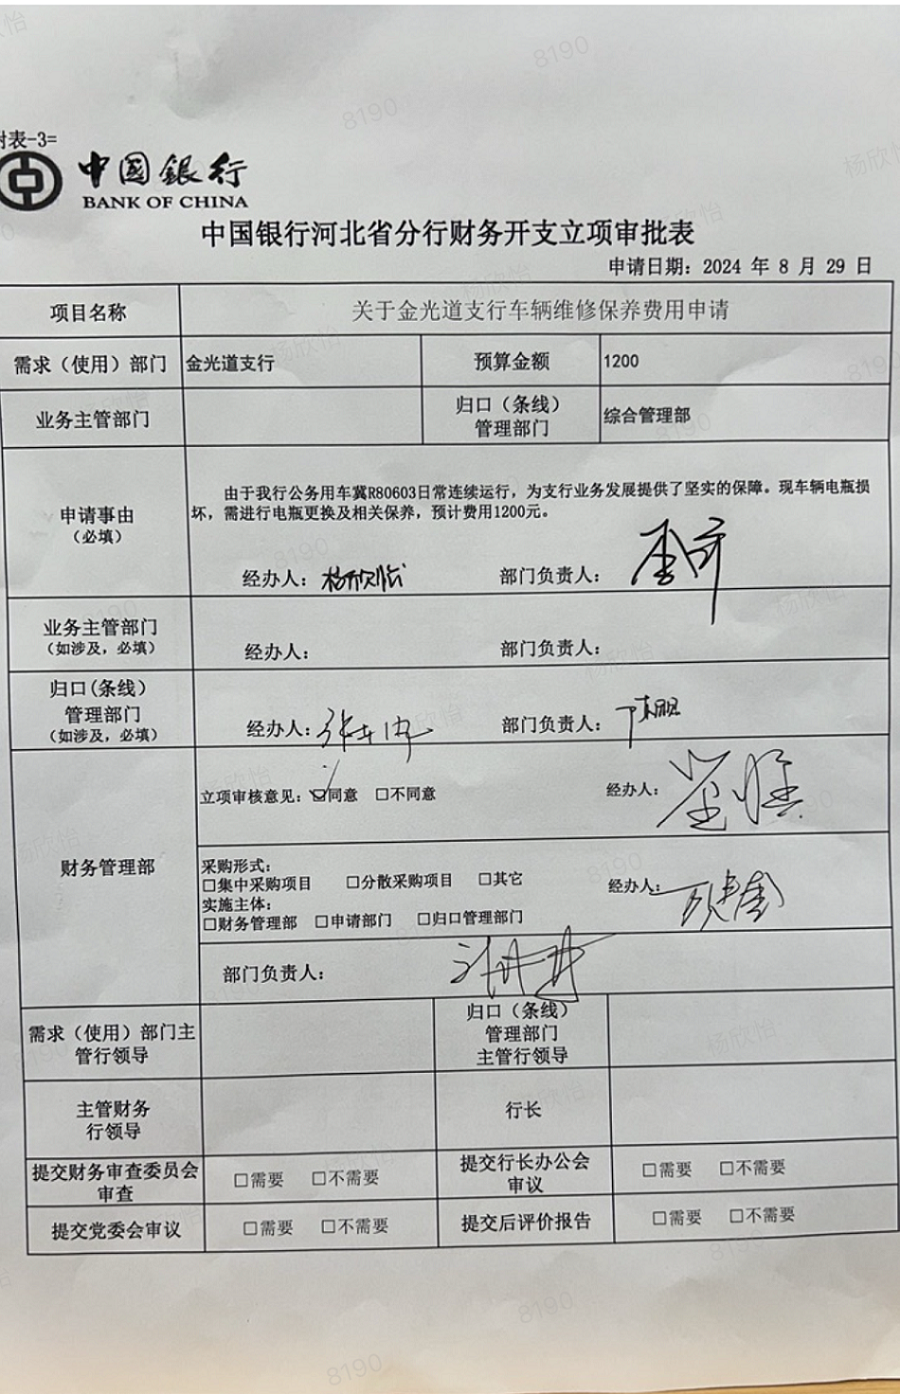 附表-3=
中国銀行
BANK OF CHINA
中国银行河北省分行财务开支立项审批表
申请日期：2024 年 8 月 29 日
项目名称 关于金光道支行车辆维修保养费用申请
需求（使用）部门 金光道支行 预算金额 1200
业务主管部门 归口（条线）
管理部门 综合管理部
申请事由
（必填）
由于我行公务用车冀R80603日常连续运行，为支行业务发展提供了坚实的保障。现车辆电瓶损
坏，需进行电瓶更换及相关保养，预计费用1200元。
经办人：杨欣怡 部门负责人：
业务主管部门
（如涉及，必填）
经办人： 部门负责人：
归口(条线）
管理部门
（如涉及，必填）
经办人： 部门负责人：
财务管理部
立项审核意见：☑同意 □不同意 经办人：
采购形式：
□集中采购项目 □分散采购项目 □其它
实施主体：
□财务管理部 □申请部门 □归口管理部门
经办人：
部门负责人：
需求（使用）部门主
管行领导
归口（条线）
管理部门
主管行领导
主管财务
行领导
行长
提交财务审查委员会
审查
□需要 □不需要
提交行长办公会
审议
□需要 □不需要
提交党委会审议 □需要 □不需要
提交后评价报告 □需要 □不需要
杨欣怡
8190